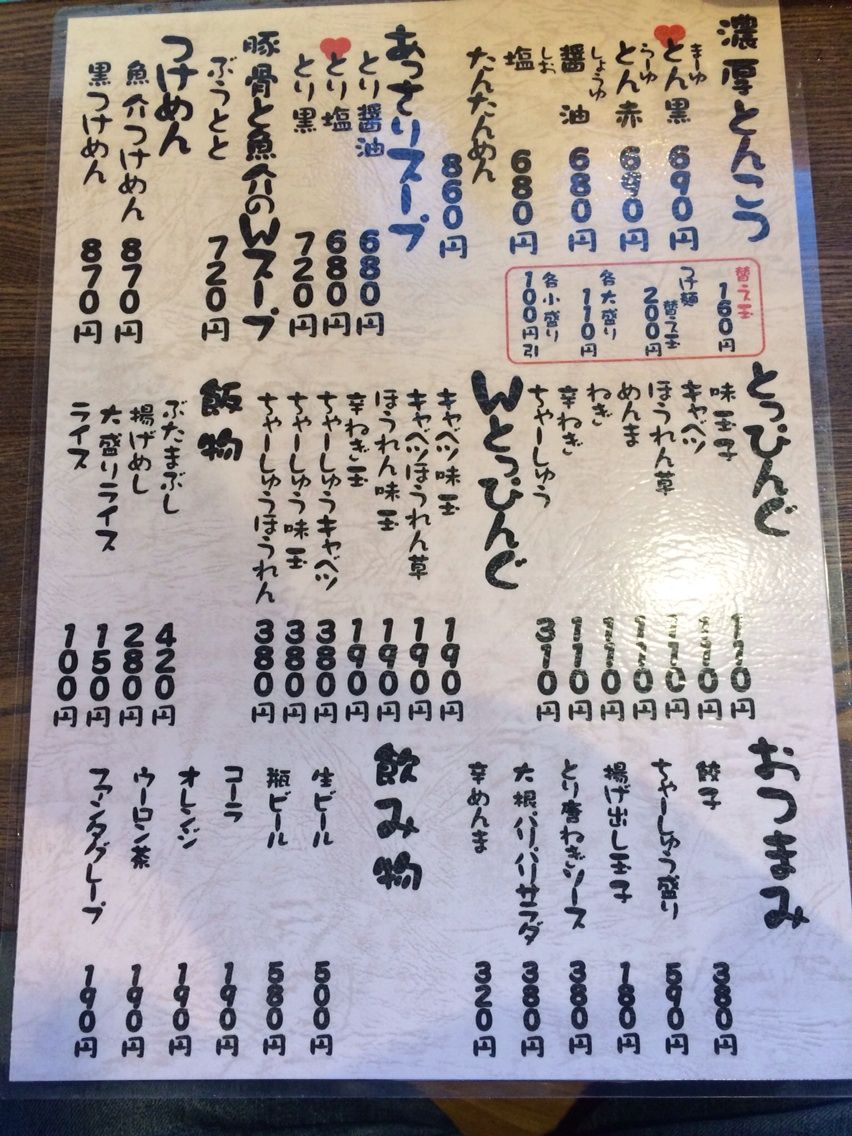 濃厚とんこつ
♥とん黒 まーゆ 690円
とん赤 らーゆ 690円
醤油 しょうゆ 680円
塩 しお 680円
たんたんめん 860円
替え玉 160円
つけ麺 替え玉 200円
各大盛り 110円
各小盛り 100円引
あっさりスープ
とり醤油 680円
♥とり塩 680円
とり黒 720円
豚骨と魚介のWスープ
ぶうとと 720円
つけめん
魚介つけめん 870円
黒つけめん 870円
とっぴんぐ
味玉子 110円
キャベツ 110円
ほうれん草 110円
めんま 110円
ねぎ 110円
辛ねぎ 110円
ちゃーしゅう 310円
Wとっぴんぐ
キャベツ味玉 190円
キャベツほうれん草 190円
ほうれん味玉 190円
辛ねぎ玉 190円
ちゃーしゅうキャベツ 380円
ちゃーしゅう味玉 380円
ちゃーしゅうほうれん 380円
飯物
ぶたまぶし 420円
揚げめし 280円
大盛りライス 150円
ライス 100円
おつまみ
餃子 380円
ちゃーしゅう盛り 590円
揚げ出し玉子 180円
とり唐ねぎソース 380円
大根パリパリサラダ 380円
辛めんま 320円
飲み物
生ビール 500円
瓶ビール 580円
コーラ 190円
オレンジ 190円
ウーロン茶 190円
ファンタグレープ 190円